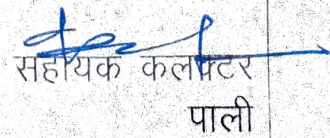 सहायक कलक्टर
पाली